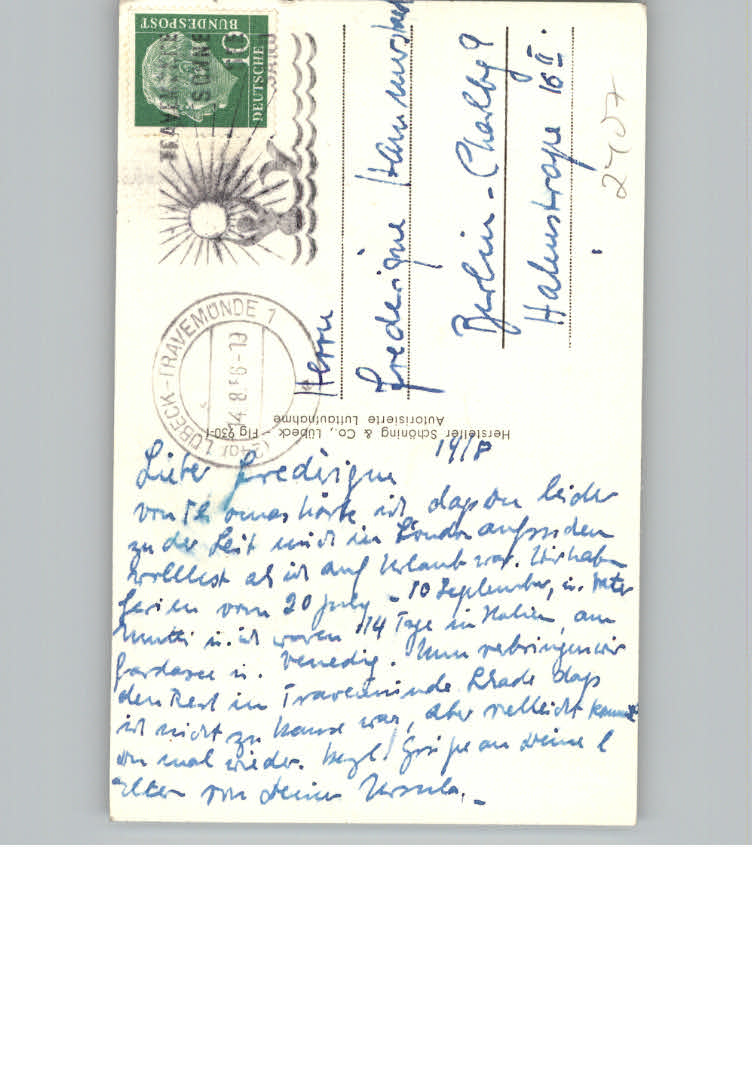 DEUTSCHE
BUNDESPOST
10
TRAVEMÜNDE
SONNE
SAND
LÜBECK-TRAVEMÜNDE 1
14.8.56-19
(24a)
Herrn
Frederique
Berlin-Charlbg 9
16 II.
2407
Hersteller Schöning & Co., Lübeck - Flg 930-1
Autorisierte Luftaufnahme
14/8
Lieber Frederique
von Thomas hörte ich dass Du leider
zu der Zeit mich in London aufsuchen
wolltest als ich auf Urlaub war. Wir haben
ferien vom 20 July - 10 September, u. Vater
Mutti u. ich waren 14 Tage in Italien, am
Gardasee u. Venedig. Nun verbringen wir
den Rest in Travemünde. Schade dass
ich nicht zu Hause war, aber vielleicht kommst
Du mal wieder. Herzl. Grüsse an Deine l
Eltern von Deiner Ursula.